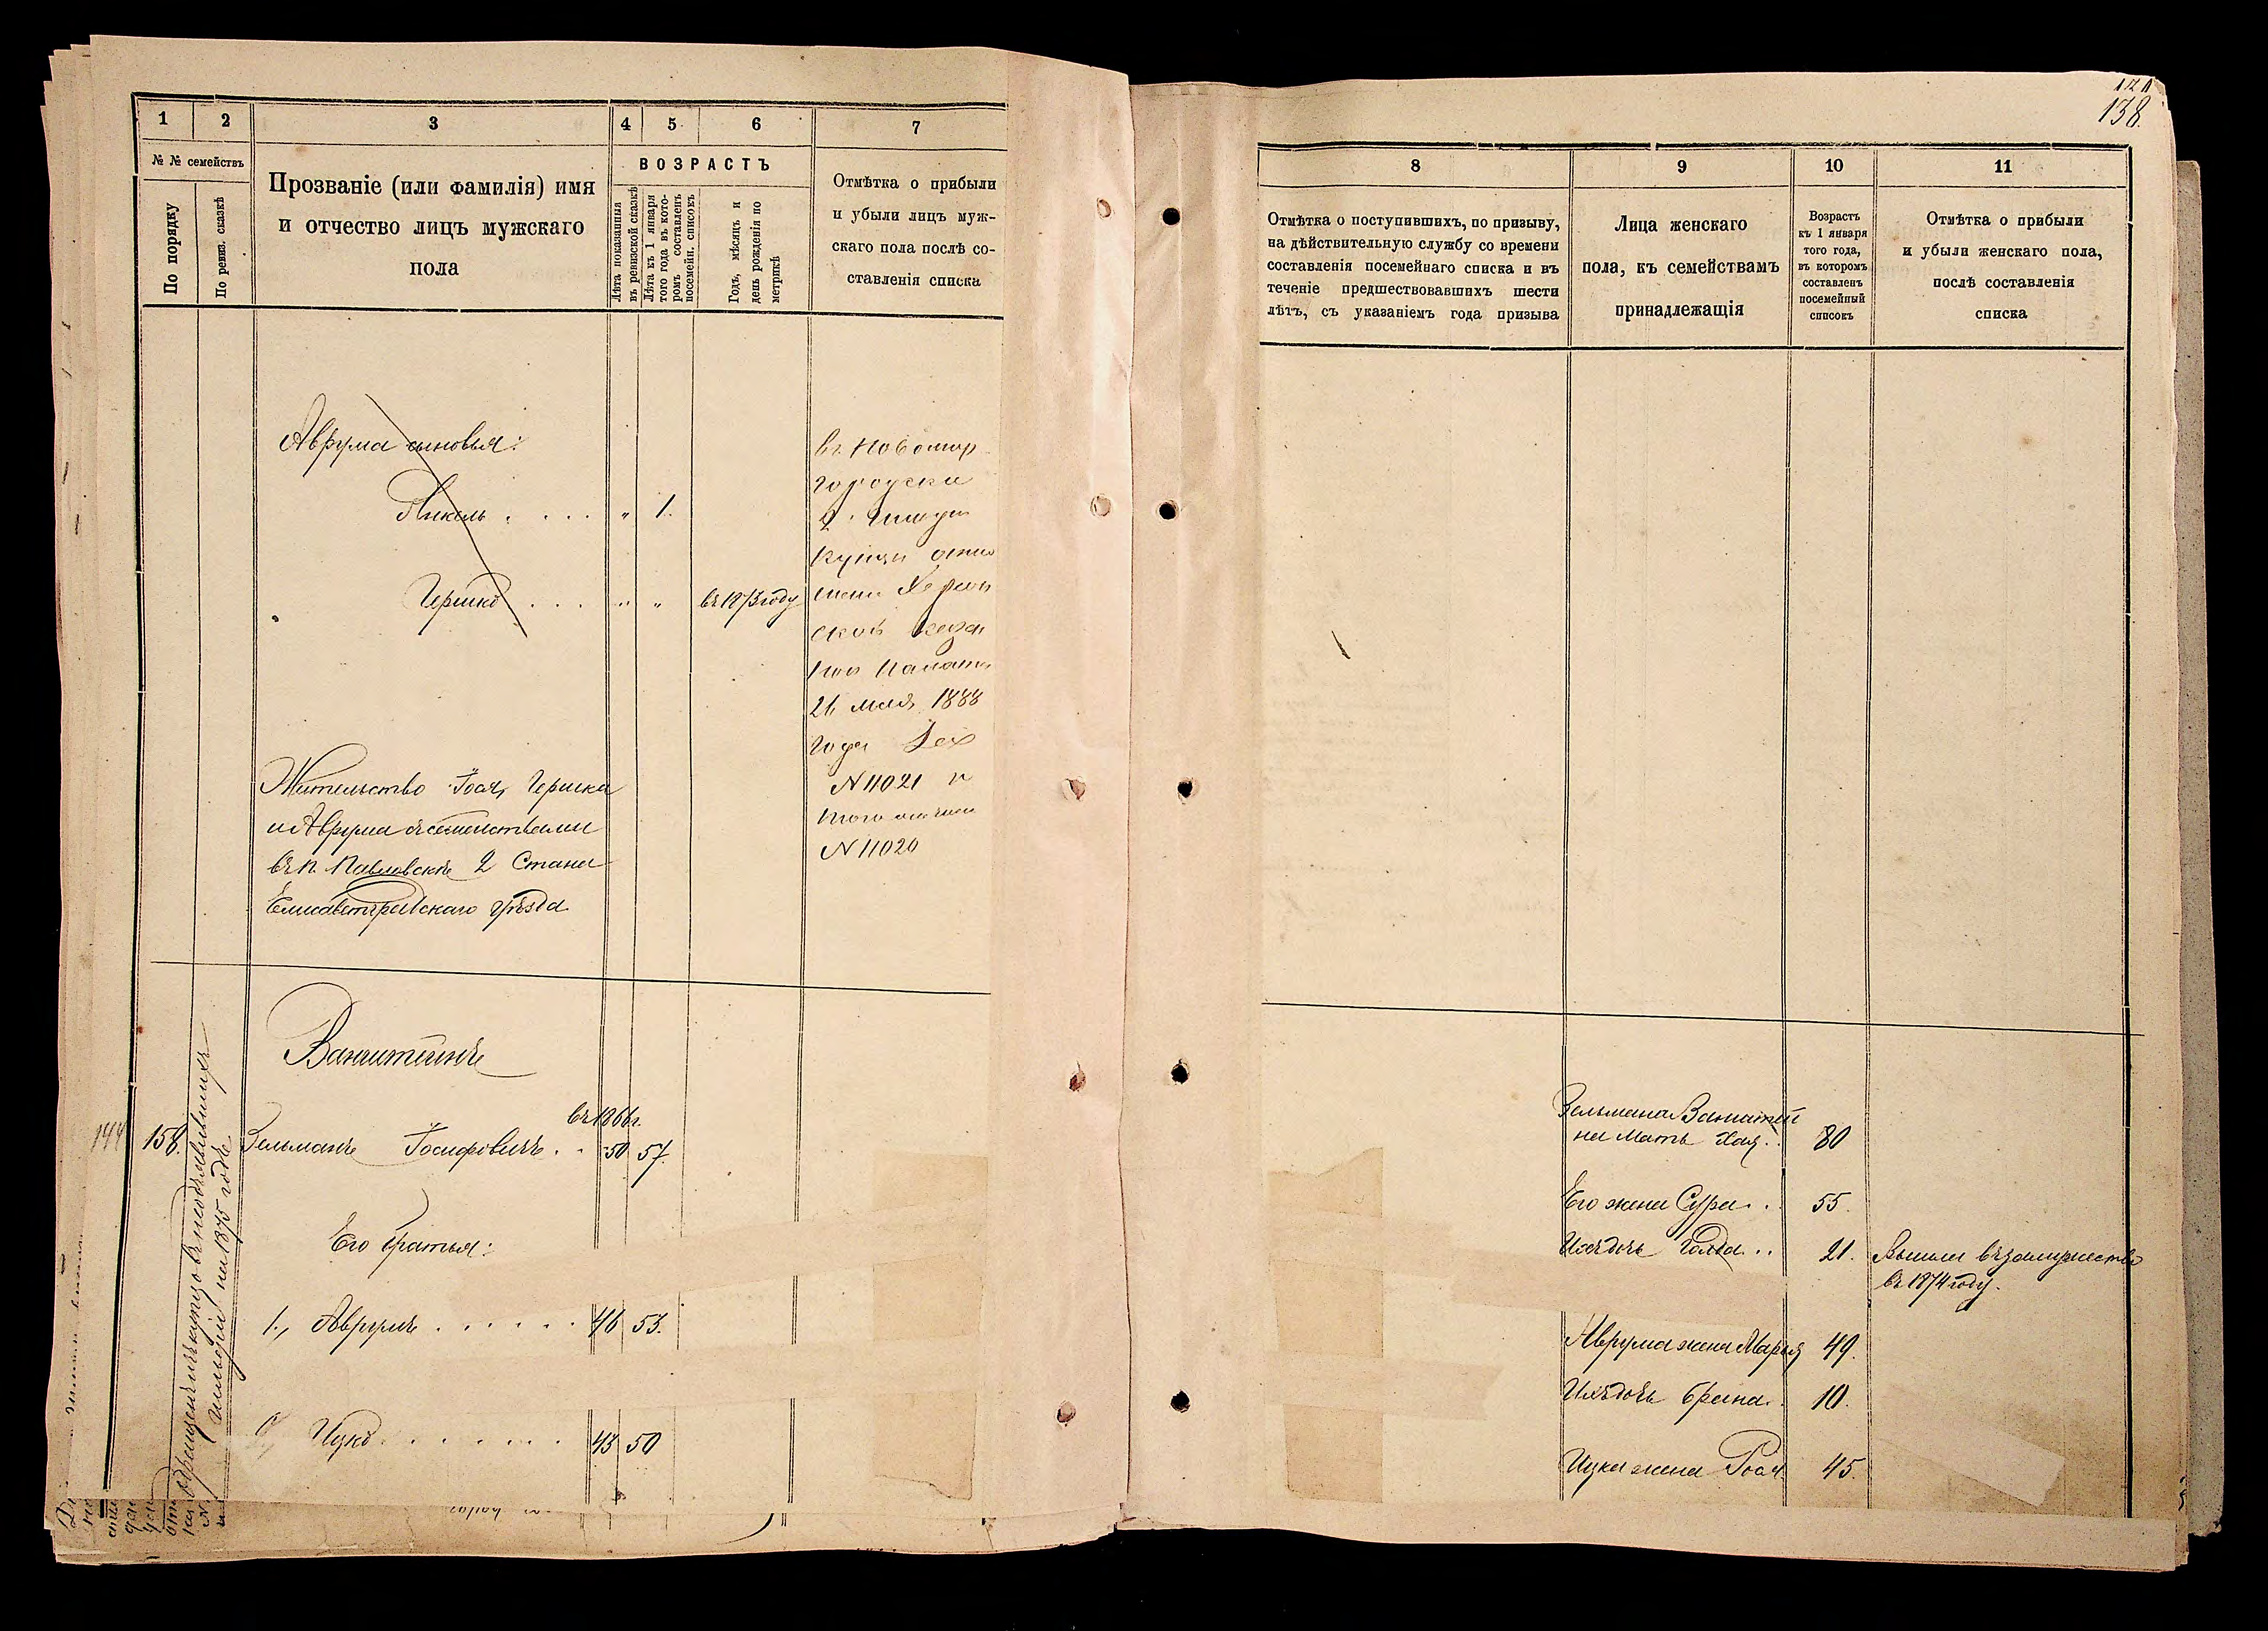 1
2
3
4
5
6
7
№ № семействъ
По порядку
По ревиз. сказкѣ
Прозваніе (или фамилія) имя
и отчество лицъ мужскаго
пола
ВОЗРАСТЪ
Лѣта показанныя
въ ревизской сказкѣ
Лѣта къ 1 января
того года въ кото-
ромъ составленъ
посемейн. списокъ
Годъ, мѣсяцъ и
день рожденія по
метрикѣ
Отмѣтка о прибыли
и убыли лицъ муж-
скаго пола послѣ со-
ставленія списка
Аврума сыновья:
Янкель . . . . „ 1.
Гершко . . . „ „ въ 1873 году
въ Новомир-
городски
2
купцы
Херсон
ской Казен
ной Палаты
21 мая 1888
года
N 11021 и
N 11020
Жительство Іося, Гершка
и Аврума съ семействами
въ п. Павловскѣ 2 Стана
Елисаветградскаго уѣзда
Ванштейнъ
въ 1866 г.
144 158. Зельманъ Іосифовичъ . . 50 57.
на 1875 годъ
Его братья:
1., Аврумъ . . . . . . 46 53.
Ицко . . . . . . . 43 50
138.
8
9
10
11
Отмѣтка о поступившихъ, по призыву,
на дѣйствительную службу со времени
составленія посемейнаго списка и въ
теченіе предшествовавшихъ шести
лѣтъ, съ указаніемъ года призыва
Лица женскаго
пола, къ семействамъ
принадлежащія
Возрастъ
къ 1 января
того года,
въ которомъ
составленъ
посемейный
списокъ
Отмѣтка о прибыли
и убыли женскаго пола,
послѣ составленія
списка
Зельмана Ванштей
на мать Хая . . 80
Его жена Сура . . 55.
Ихъ дочь Голда . . 21. Вышла въ замужество
въ 1874 году.
Аврума жена Марья 49.
Ихъ дочь Брана . 10.
Ицка жена Рося 45.